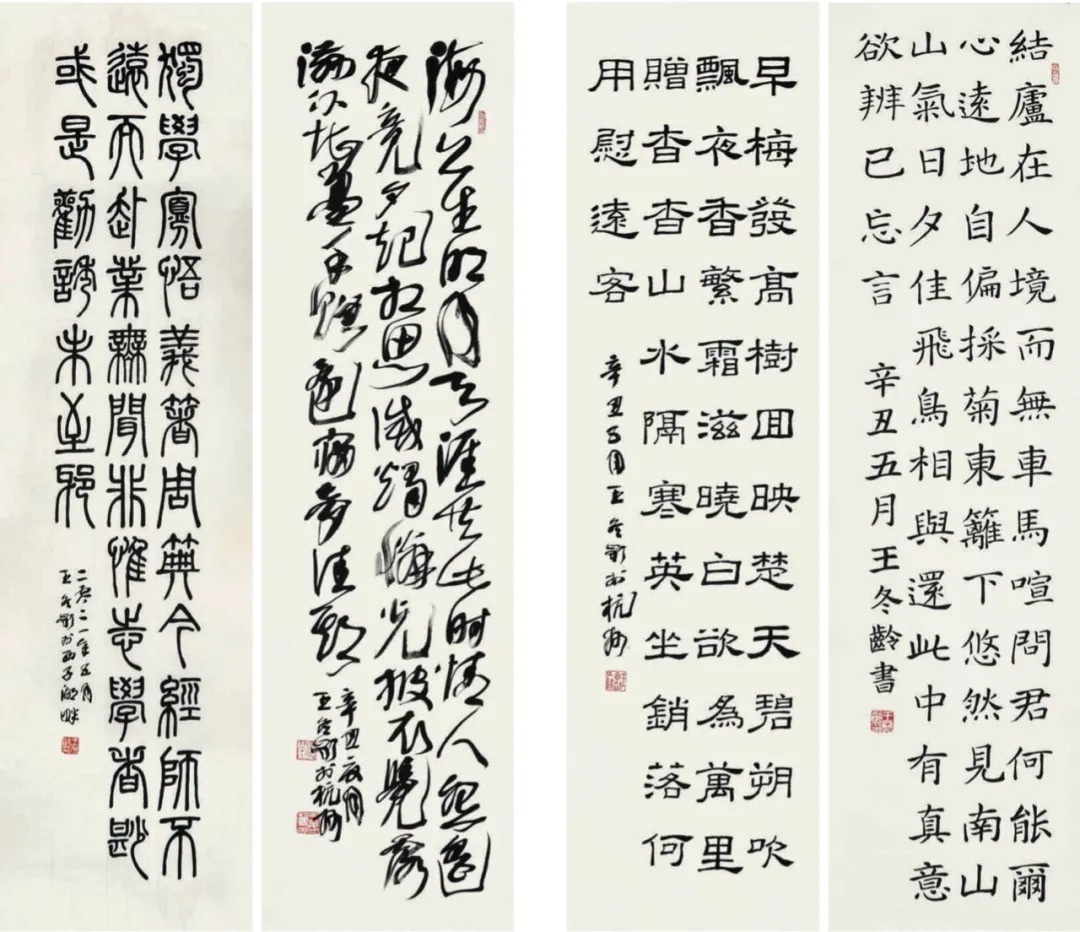 結廬在人境而無車馬喧問君何能爾
心遠地自偏採菊東籬下悠然見南山
山氣日夕佳飛鳥相與還此中有真意
欲辨已忘言
辛丑五月王冬齡書
早梅發髙樹囬映楚天碧朔吹
飄夜香繁霜滋曉白欲為萬里
贈杳杳山水隔寒英坐銷落何
用慰遠客
辛丑五月王冬齡於杭州
海上生明月天涯共此時情人怨遙
夜竟夕起相思滅燭憐光披衣覺露
滋不堪盈手贈還寢夢佳期
辛丑夏月
王冬齡於杭州
獨學寡悟義著周典今經師不
遠而赴業無聞非惟志學者尠
或是勸誘未至邪
二〇二一年五月
王冬齡於西子湖畔